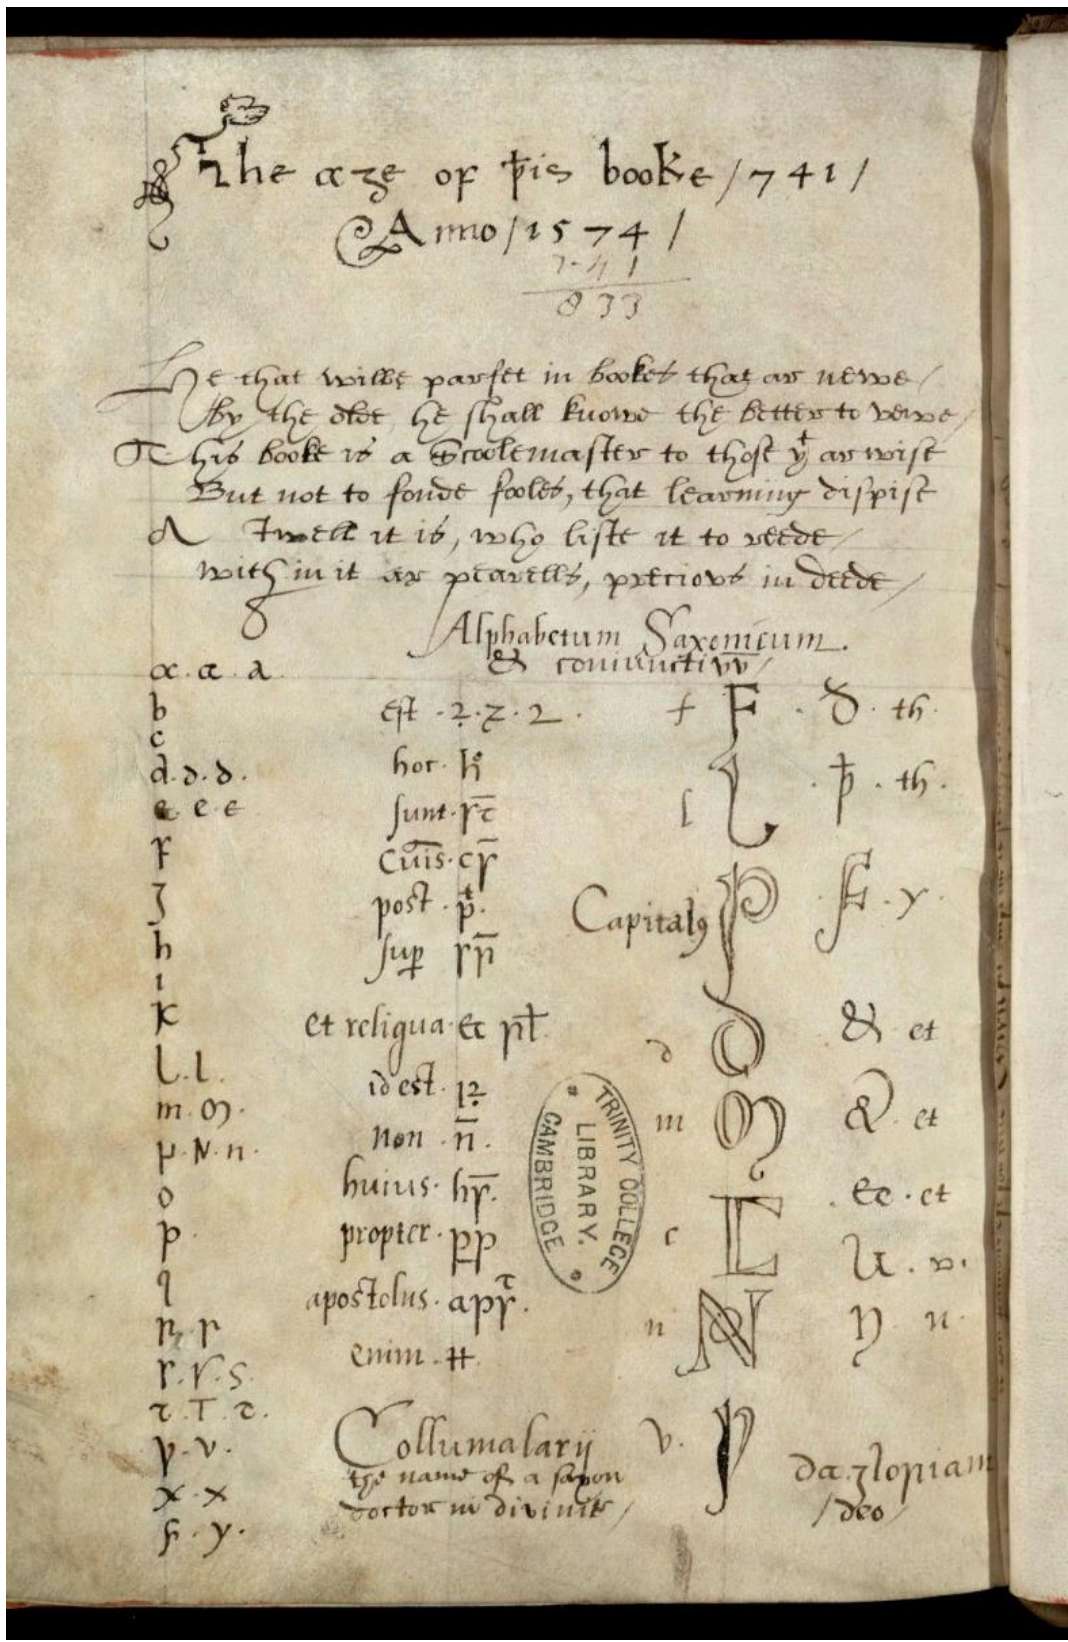 The age of þis booke /741/
Anno /1574/
741
833
He that wille parfet in bookes that ar newe /
by the olde he shall knowe the better to vewe /
This booke is a Scolemaster to those yͭ ar wise
But not to fonde fooles, that learning dispise
A Iwell it is, who liste it to reede /
within it ar pearells, precious in deede /
Alphabetum Saxonicum.
& coniunctiuū /
a. a. a
b
c
d. d. d.
e. e. e
f
g
h
i
k
l. l.
m. m.
n. N. n.
o
p.
q
r. r
s. s. s.
t. T. t.
v. v.
x. x
y. y.
est
hoc
sunt
cuiꝰ
post
suꝑ
et reliqua
id est
non
huius
propter · pp
apostolus
enim
Collumalarij
the name of a saxon
doctor in divinite /
Capitalꝯ
f F
l
d
m
c
n N
v.
ð. th.
þ. th.
y.
& et
& et
et
U. v.
n.
da gloriam
/deo/
TRINITY COLLEGE
LIBRARY.
CAMBRIDGE